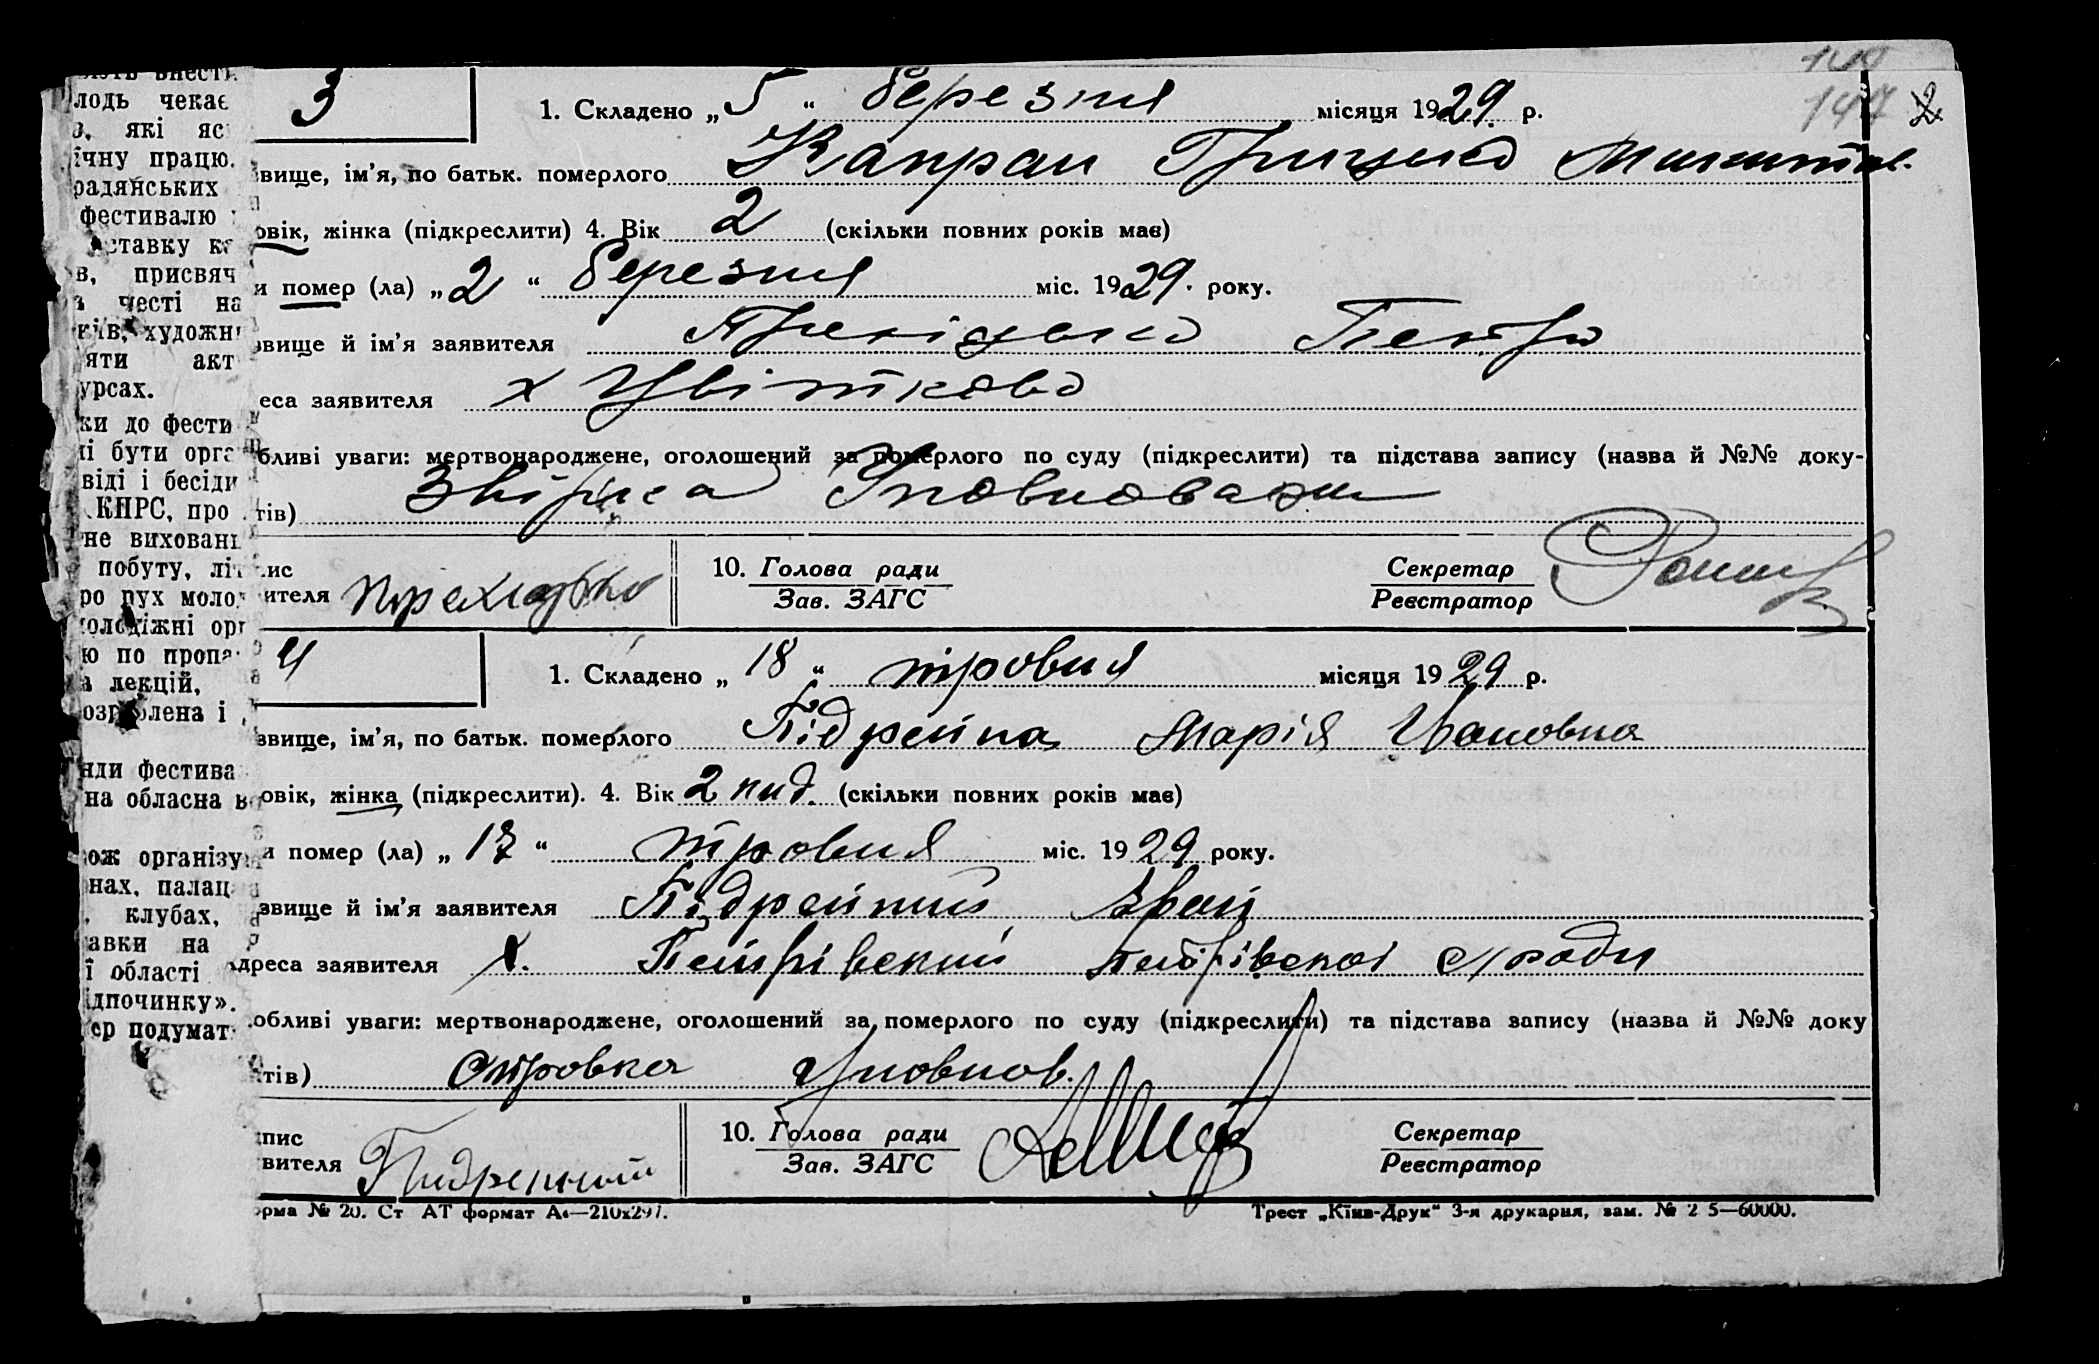 144
147 2
3
1. Складено „5“ березня місяця 1929 р.
звище, ім’я, по батьк. померлого Капран Грицько Микитов.
овік, жінка (підкреслити) 4. Вік 2 (скільки повних років має)
и помер (ла) „2“ березня міс. 1929. року.
звище й ім’я заявителя Петро
еса заявителя х Цвіткова
бливі уваги: мертвонароджене, оголошений за померлого по суду (підкреслити) та підстава запису (назва й №№ доку-
тів)
ис
ителя
10. Голова ради
Зав. ЗАГС
Секретар
Реєстратор
4
1. Складено „18“ тровня місяця 1929 р.
звище, ім’я, по батьк. померлого Підрейна Марія Івановна
овік, жінка (підкреслити). 4. Вік 2 нид. (скільки повних років має)
и помер (ла) „17“ тровня міс. 1929 року.
звище й ім’я заявителя Підрейний Іван
дреса заявителя х. Петрівский Петрівскоі с/ради
обливі уваги: мертвонароджене, оголошений за померлого по суду (підкреслити) та підстава запису (назва й №№ доку
тів) Уповнов.
пис
вителя
10. Голова ради
Зав. ЗАГС
Секретар
Реєстратор
орма № 20. Ст АТ формат А4—210х297.
Трест „Київ-Друк“ 3-я друкарня, зам. № 2 5—60000.
лодь чекає
, які яс
ічну працю.
радянських
фестивалю
ставку к
в, присвяч
честі на
ків, художн
яти акт
урсах.
ки до фести
і бути орга
віді і бесіди
КПРС, про
не вихован
побуту, літ
ро рух моло
олодіжні орг
ю по пропа
а лекцій,
озроблена і
нди фестива
на обласна в
ож організу
нах, палац
, клубах,
авки на
ї області
ідпочинку».
ер подумат